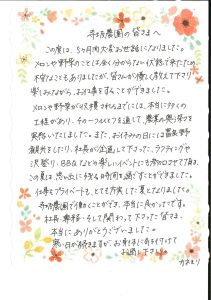 寺坂農園の皆さまへ
この度は、5ヶ月間大変お世話になりました。
メロンや野菜のことは全く分からない状態で来たため
不安なこともありましたが、皆さんが優しく教えて下さり
楽しみながら、お仕事をすることができました。
メロンや野菜が収穫されるまでには、本当に沢山の
工程があり、その一つ一つを通して、農業の奥深さを
実感いたしました。また、お休みの日には富良野
観光をしたり、社長が企画して下さった、ラフティングや
沢登り、BBQなどの楽しいイベントにも参加させて頂き、
この夏は、思い出に残る時間を過ごすことができました。
仕事もプライベートも、とても充実した夏となりました。
寺坂農園で働くことができ、本当に良かったです。
社長、専務、そして関わって下さった皆さま、
本当にありがとうございました。
寒い日が続きますが、お身体に気を付けて
お過し下さい。